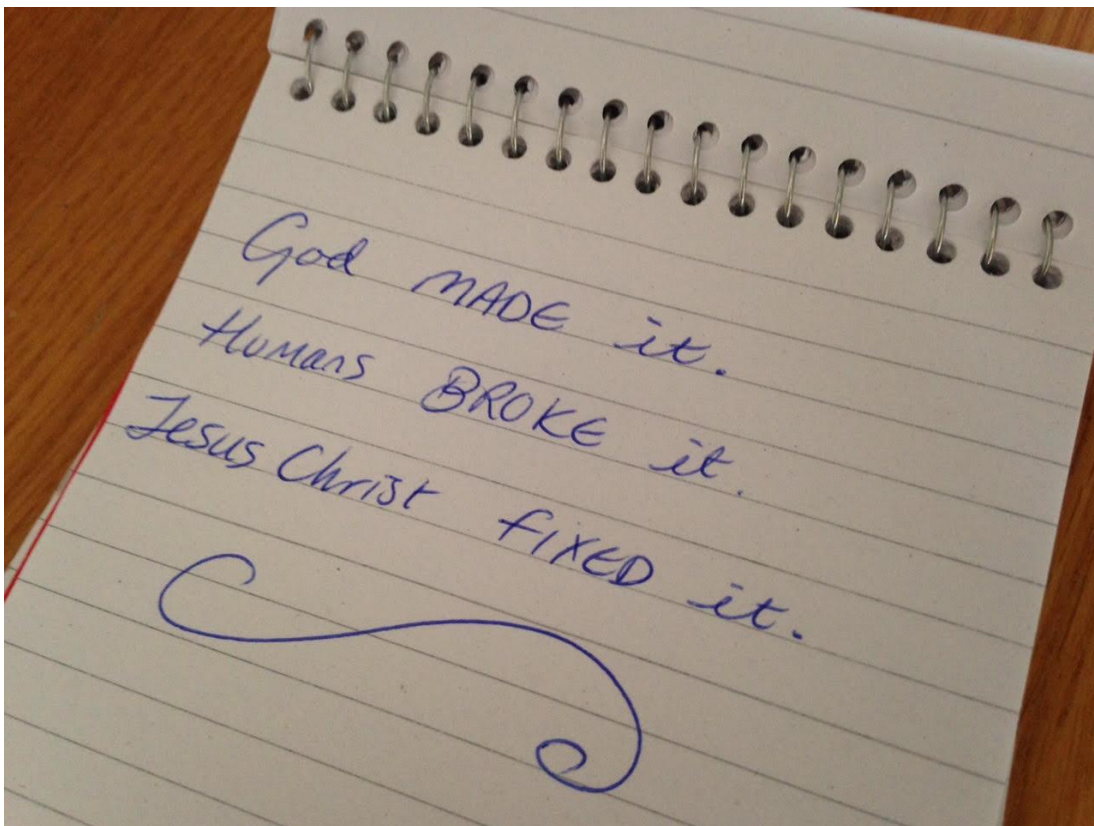 God MADE it.
Humans BROKE it.
Jesus Christ FIXED it.